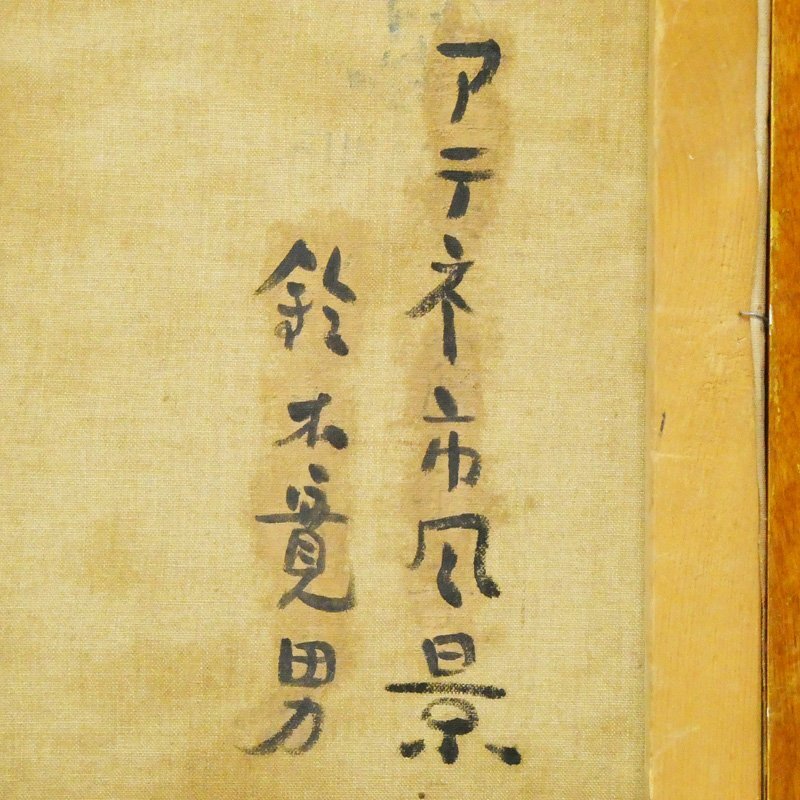 アテネ市風景
鈴木寛男